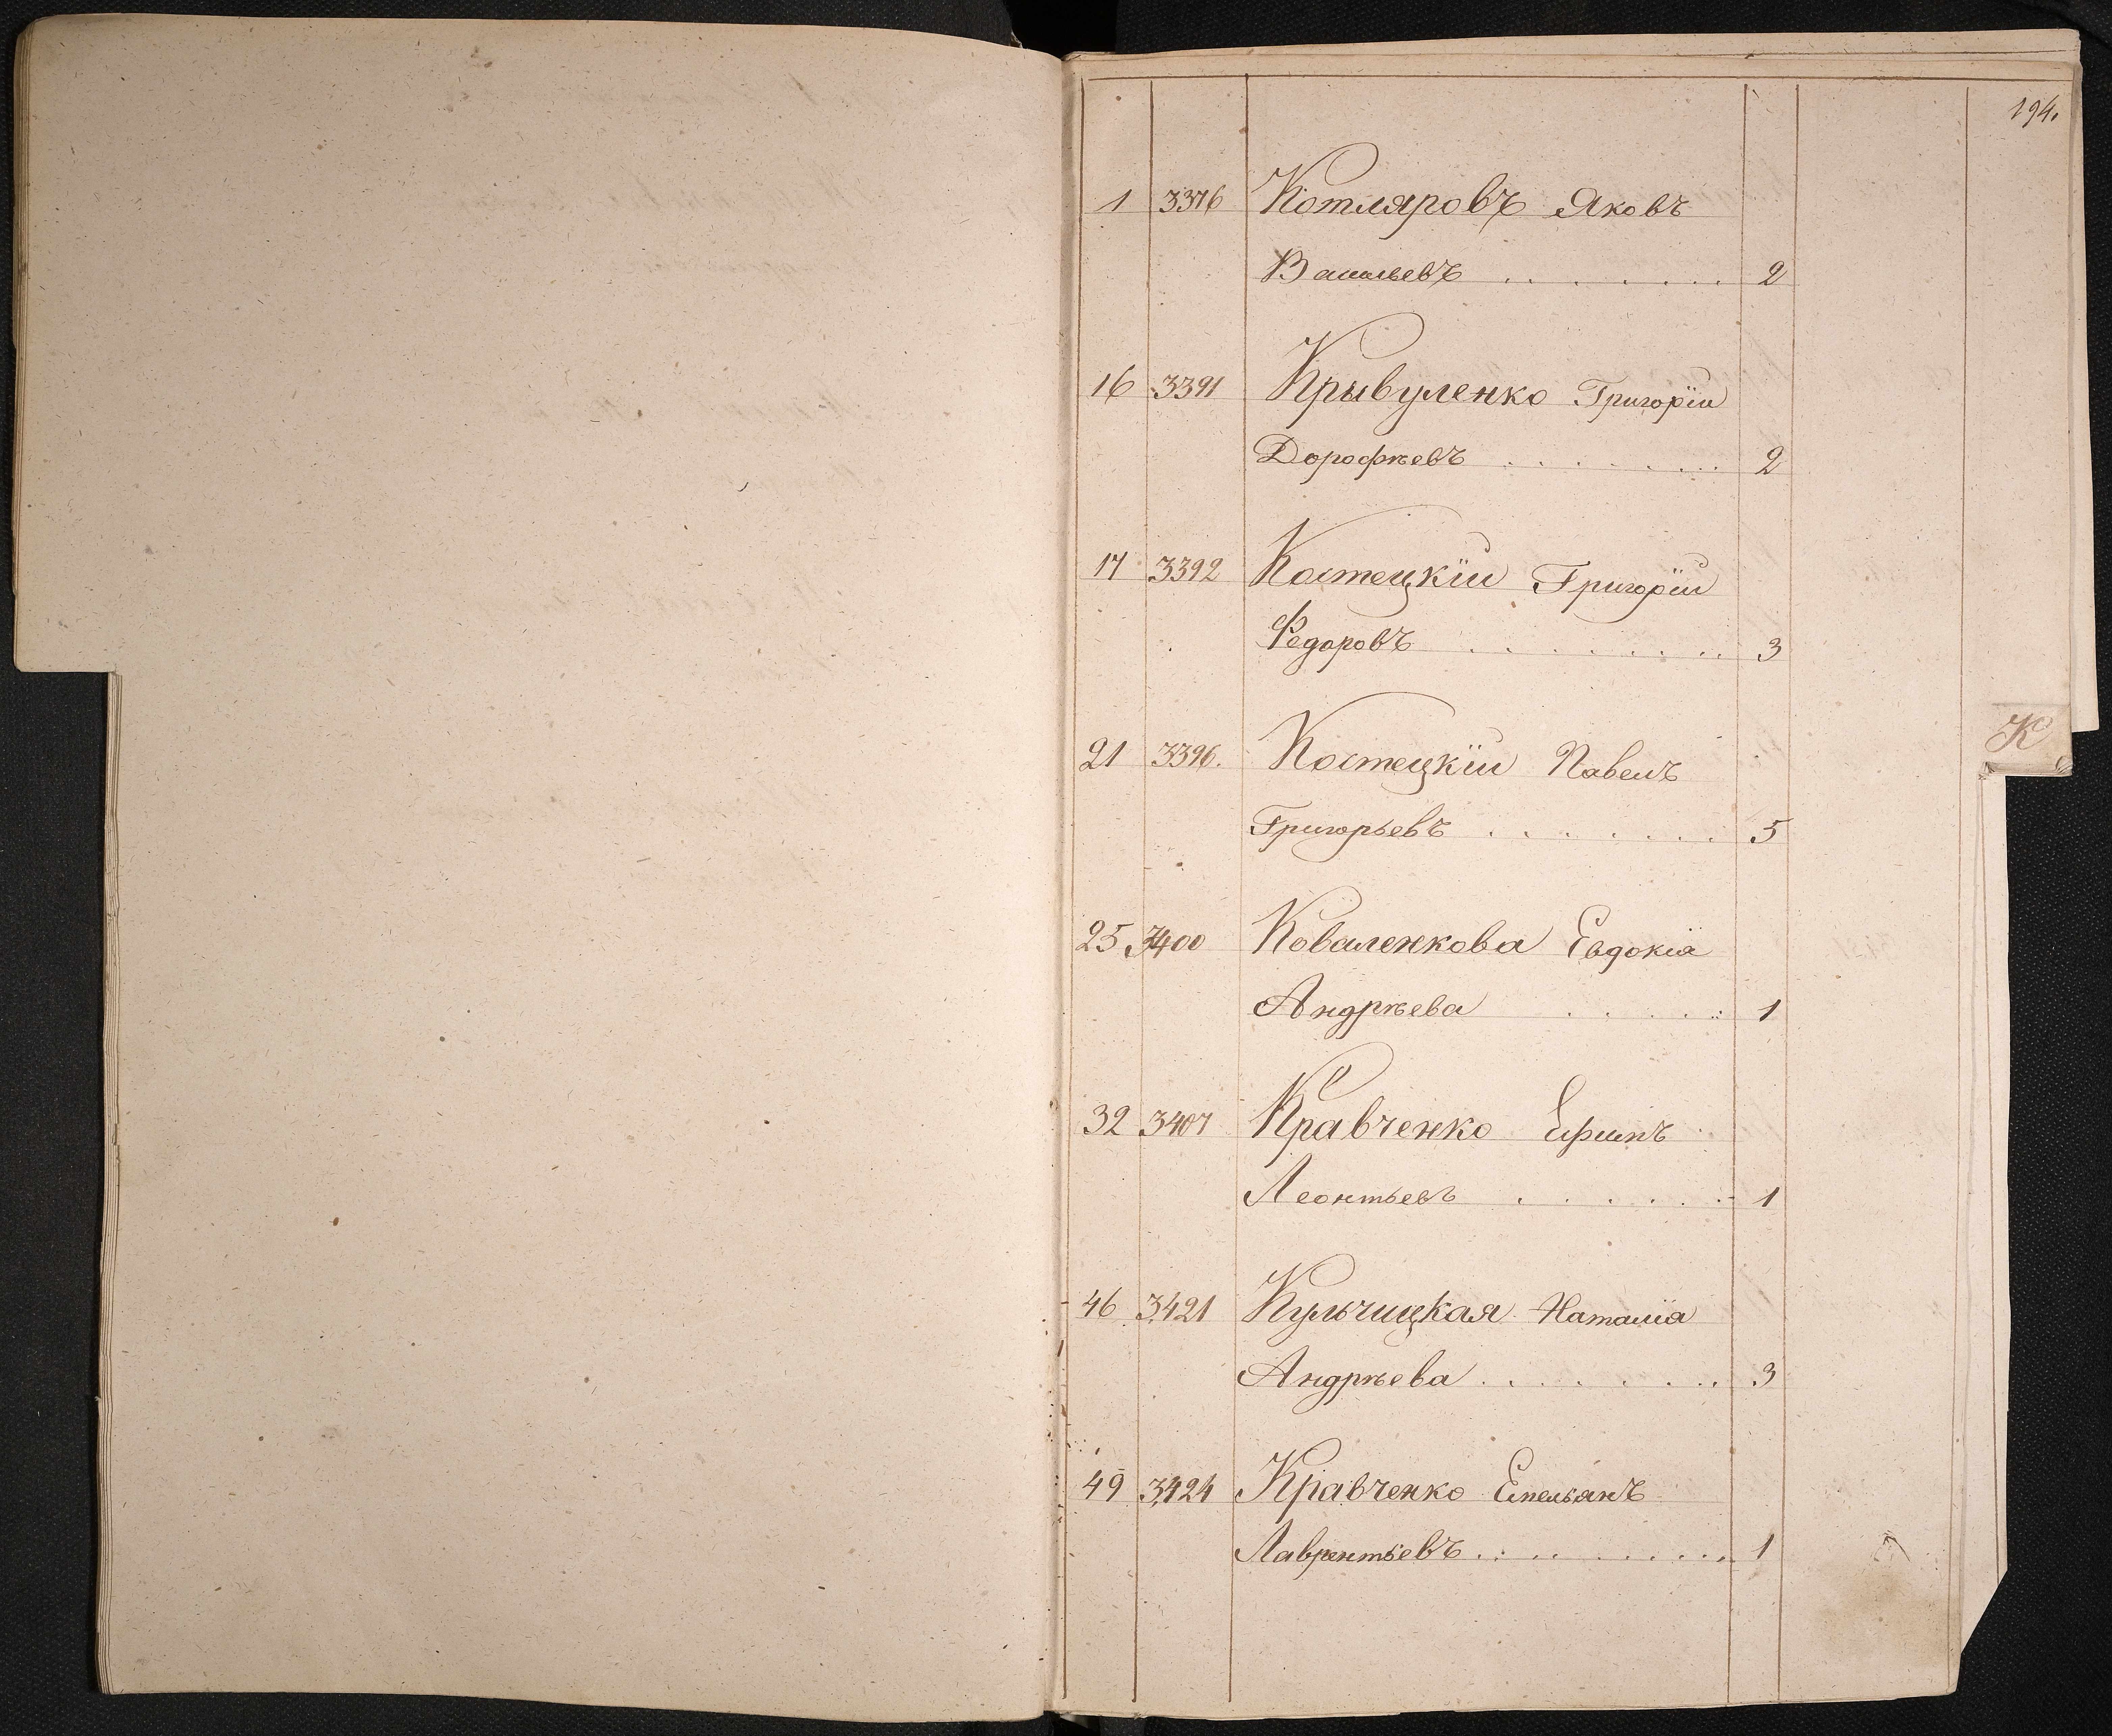 194.
1 3376 Котляровъ Яковъ
Васильевъ . . . . . . . 2
16 3391 Крывуленко Григорій
Дорофѣевъ . . . . . . . 2
17 3392 Костецкій Григорій
Федоровъ . . . . . . . . 3
21 3396. Костецкій Павелъ
Григорьевъ . . . . . . . 5
К
25 3400 Коваленкова Евдокія
Андрѣева . . . . . . 1
32 3407 Кравченко Ефимъ
Леонтьевъ . . . . . . . 1
46 3421 Кульчицкая Наталія
Андрѣева . . . . . . . . 3
49 3424 Кравченко Емельянъ
Лаврентьевъ . . . . . . . . . 1